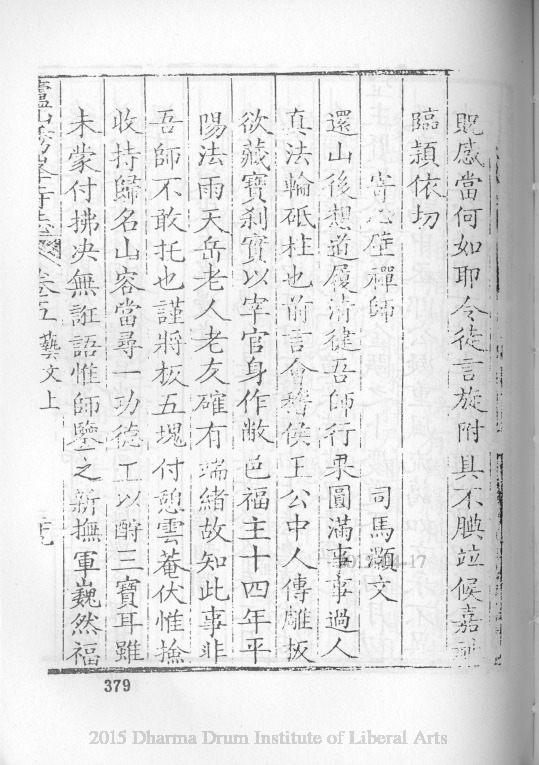 貺感當何如耶令徒言旋附具不腆竝候嘉
臨頴依切
寄 壁禪師 司馬顯文
還山後想道履清健吾師行果圓滿事事過人
真法輪砥柱也前言會稽侯王公中人傳雕板
欲藏寶刹實以宰官身作敝邑福主十四年平
賜法雨天岳老人老友確有端緒故知此事非
吾師不敢托也謹將板五塊付憩雲菴伏惟撿
收持歸名山容當尋一功德工以酧三寶耳雖
未蒙付拂决無誑語惟師鑒之新撫軍巍然福
廬山秀峯寺志 卷五 藝文上
379
2015 Dharma Drum Institute of Liberal Arts